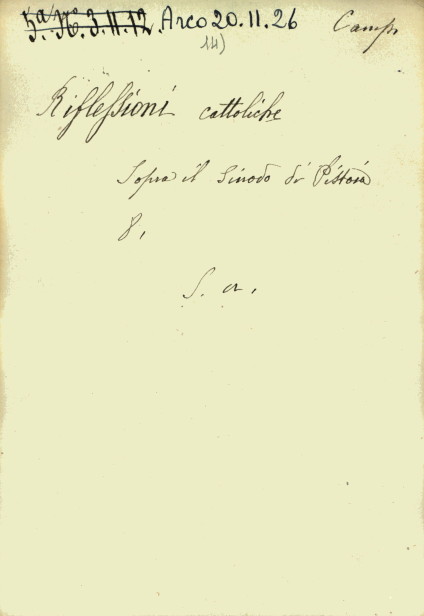 5.a/II.a N. 3.11.12. Arco 20.11.26 Camp.
14)
Riflessioni cattoliche
Sopra il Sinodo di Pistoia
8,
S. a.